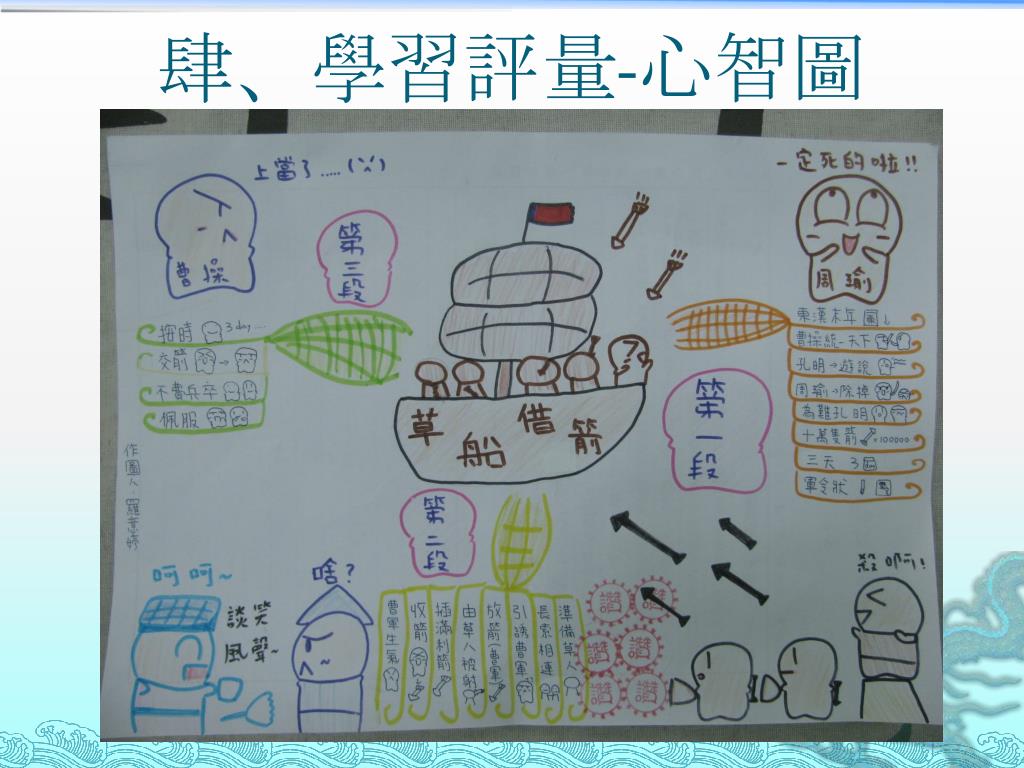 肆、學習評量-心智圖
上當了.....
曹操
第三段
按時 3 day....
交箭
不費兵卒
佩服
草船借箭
一定死的啦!!
周瑜
第一段
東漢末年
曹操統一天下
孔明→遊說
周瑜→除掉
為難孔明
十萬隻箭 ×100000
三天 3
軍令狀
第二段
準備草人
長索相連
引誘曹軍
放箭(曹軍)
由草人被射
插滿利箭
收箭
曹軍生氣
讚
讚
讚
讚
讚
讚
呵呵~
談笑風聲~
啥?
殺啊!